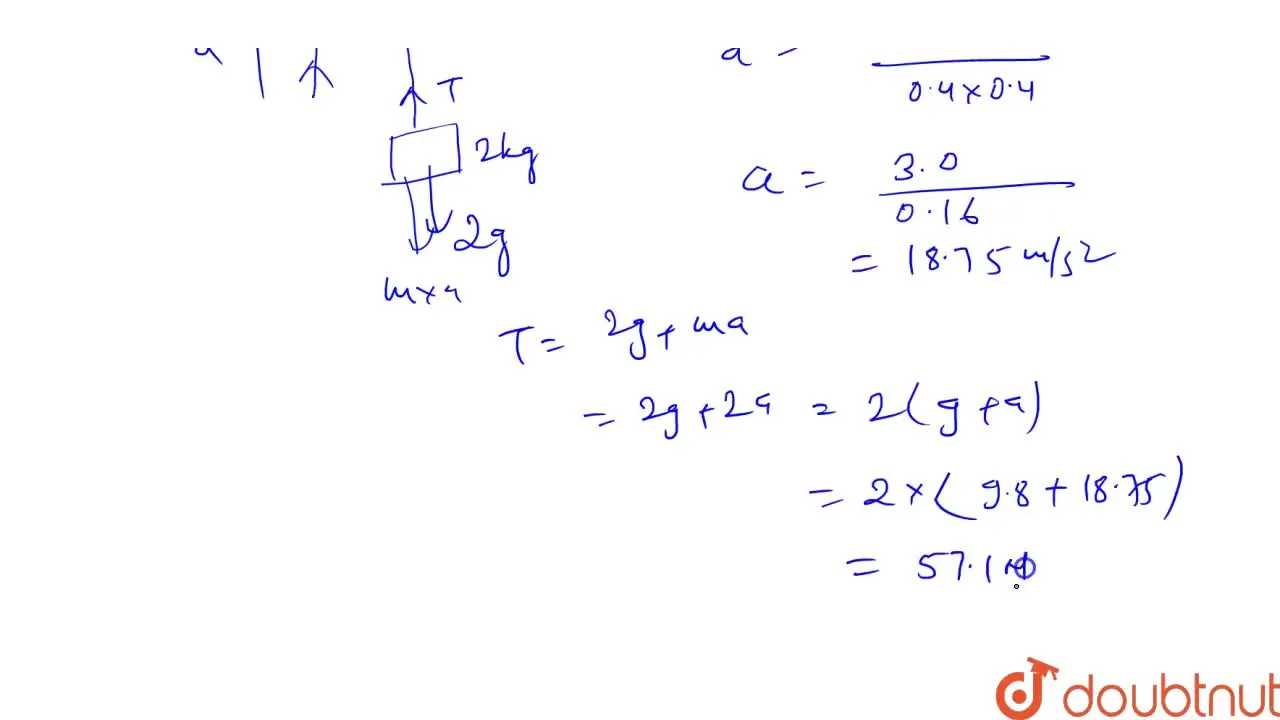 a =
0.4×0.4
T
2kg
a = 3.0
0.16
2g
= 18.75 m/s2
m×a
T = 2g + ma
= 2g + 2a = 2(g + a)
= 2×(9.8 + 18.75)
= 57.1
doubtnut